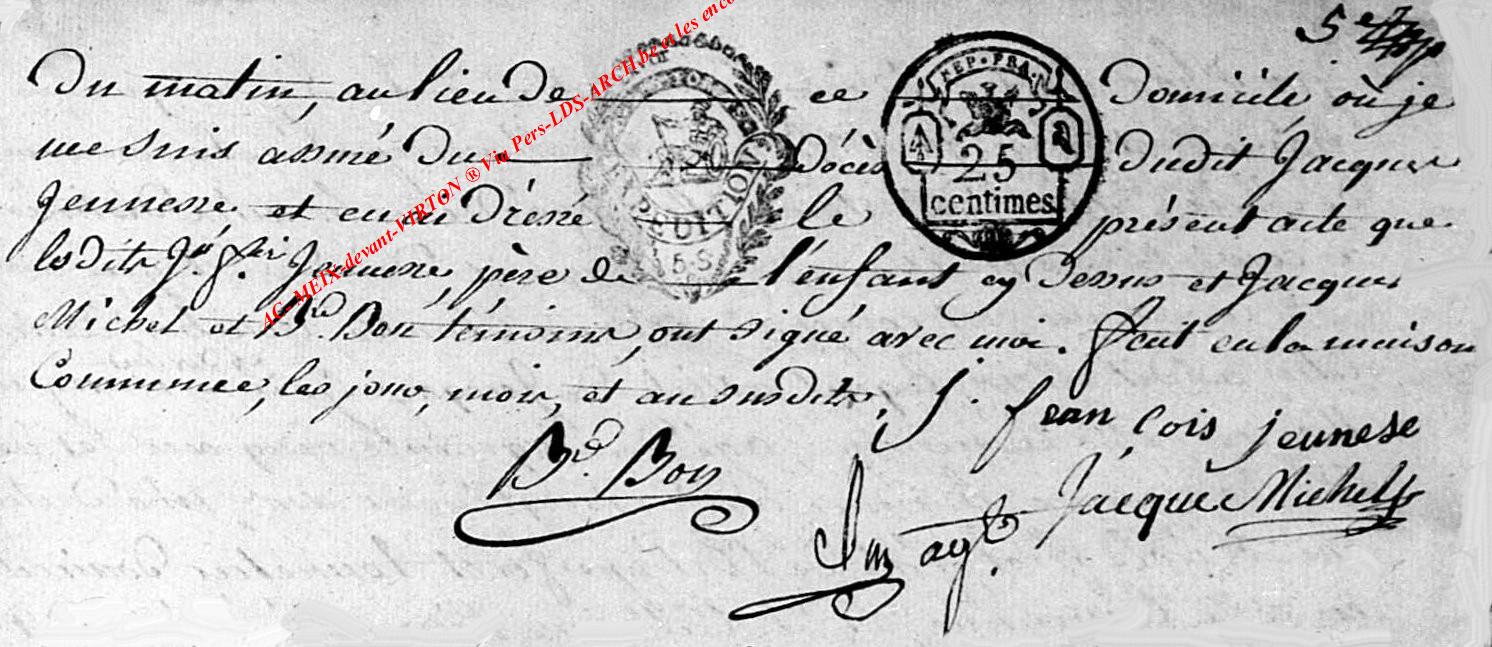 5e
du matin, au lieu de ce domicile où je
me suis assuré du décès dudit Jacques
Jeunesse et en ai dressé le présent acte que
lesdits Jn. fçois Jeunesse, père de l'enfant cy dessus et Jacques
Michel et Bd. Bon témoins, ont signé avec moi. fait en la maison
Commune, les jour, mois, et an susdits,
J. françois jeunese
Bd. Bon
Jacque Michel
agt.
REP. FRA.
25
centimes
5. S.
AC-MEIX-devant-VIRTON ® Via Pers-LDS-ARCH.be et les enco